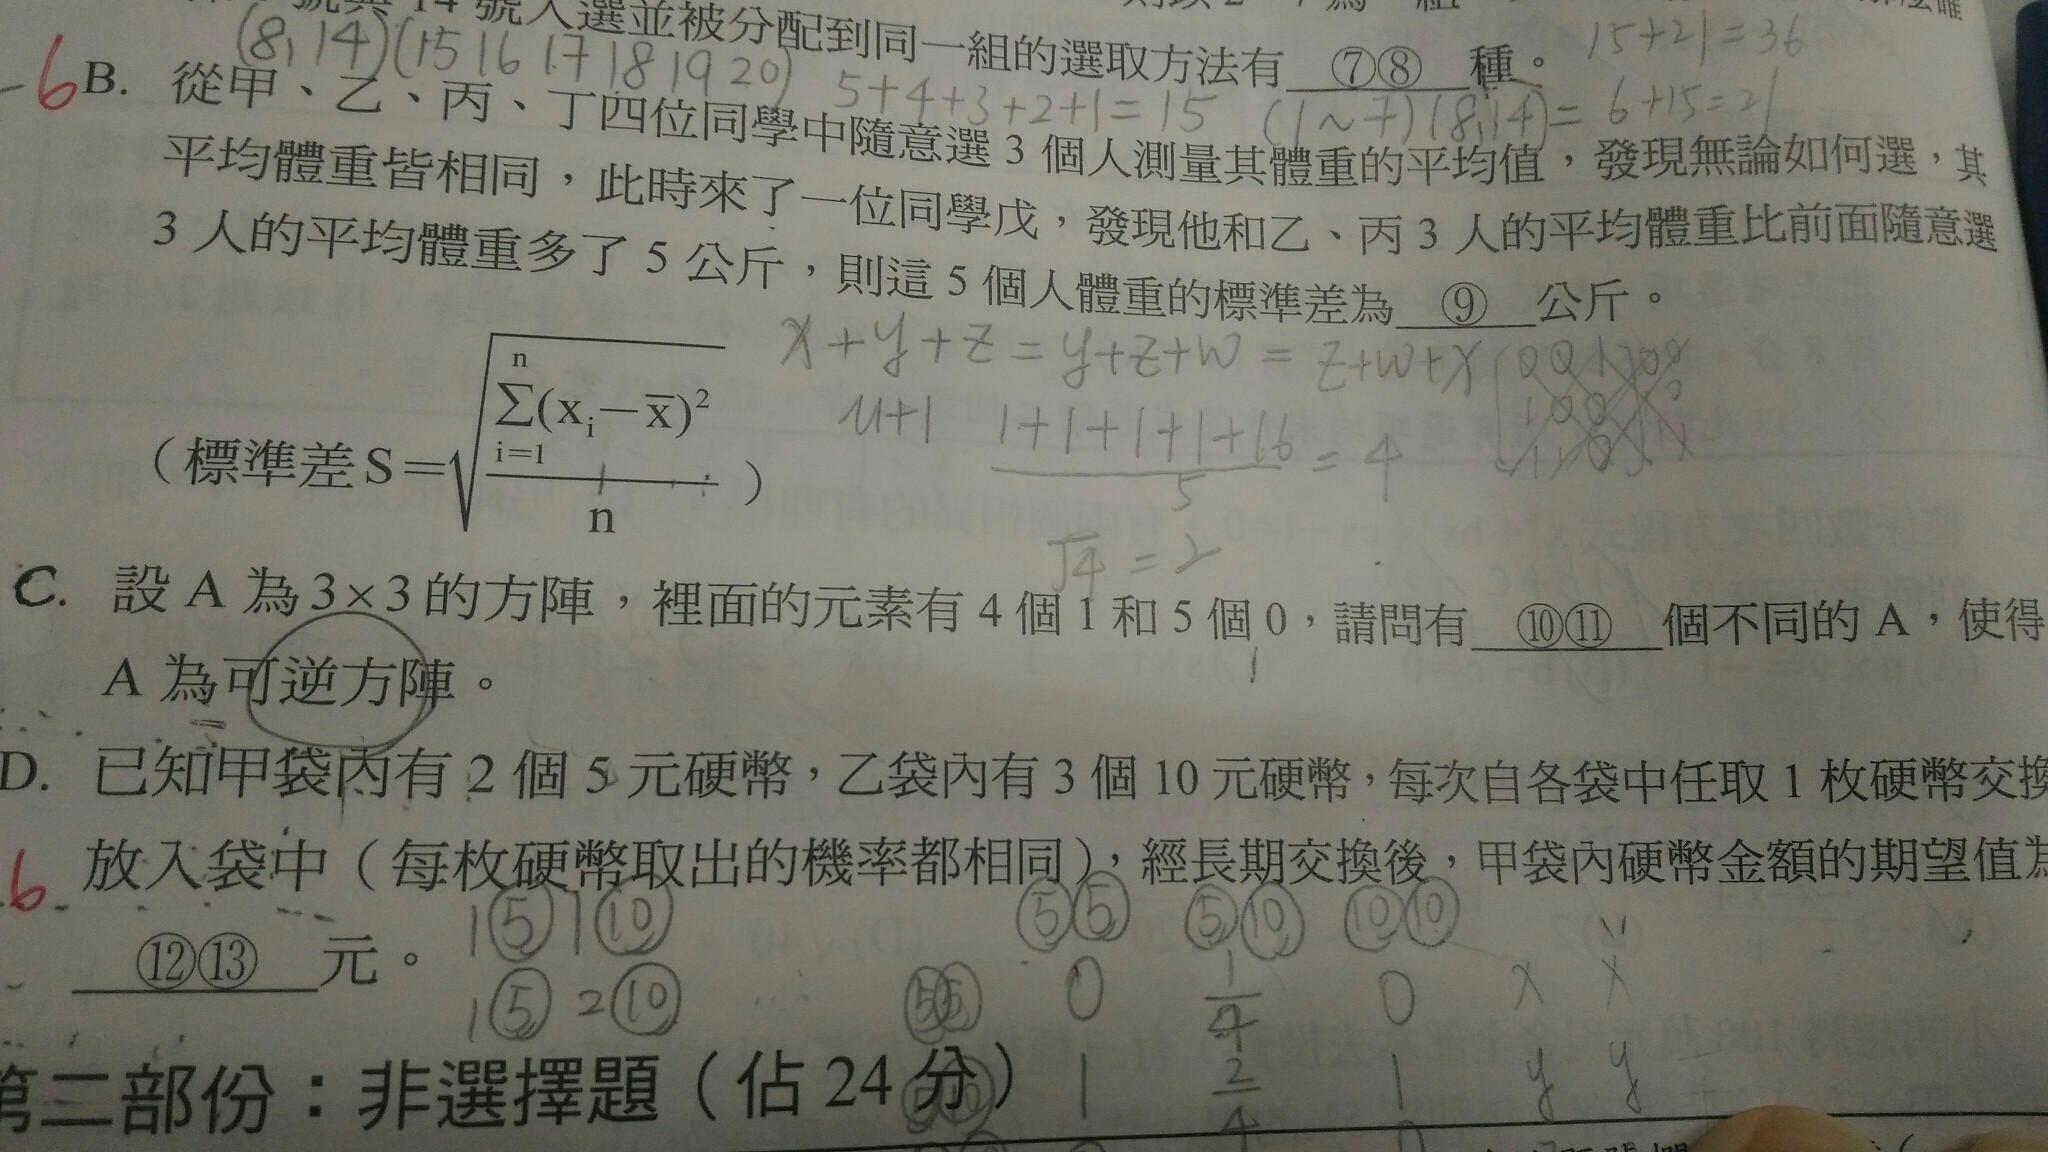 號與 14 號入選並被分配到同一組的選取方法有 ⑦⑧ 種。
15+21=36
(8,14)(15 16 17 18 19 20)
5+4+3+2+1=15
(1~7)(8,14)= 6+15=21
-6
B. 從甲、乙、丙、丁四位同學中隨意選 3 個人測量其體重的平均值，發現無論如何選，其
平均體重皆相同，此時來了一位同學戊，發現他和乙、丙 3 人的平均體重比前面隨意選
3 人的平均體重多了 5 公斤，則這 5 個人體重的標準差為 ⑨ 公斤。
x+y+z=y+z+w=z+w+x
n+1
1+1+1+1+16
5
=4
√4=2
（標準差S=√
n
Σ(xi−x̄)²
i=1
n
）
C. 設 A 為 3×3 的方陣，裡面的元素有 4 個 1 和 5 個 0，請問有 ⑩⑪ 個不同的 A，使得
A 為可逆方陣。
D. 已知甲袋內有 2 個 5 元硬幣，乙袋內有 3 個 10 元硬幣，每次自各袋中任取 1 枚硬幣交換
6
放入袋中（每枚硬幣取出的機率都相同），經長期交換後，甲袋內硬幣金額的期望值為
⑫⑬ 元。
1⑤ 1⑩
⑤⑤ ⑤⑩ ⑩⑩
1⑤ 2⑩
0 1/4 0 x x
第二部份：非選擇題（佔 24 分）
1 2/4 1 y y